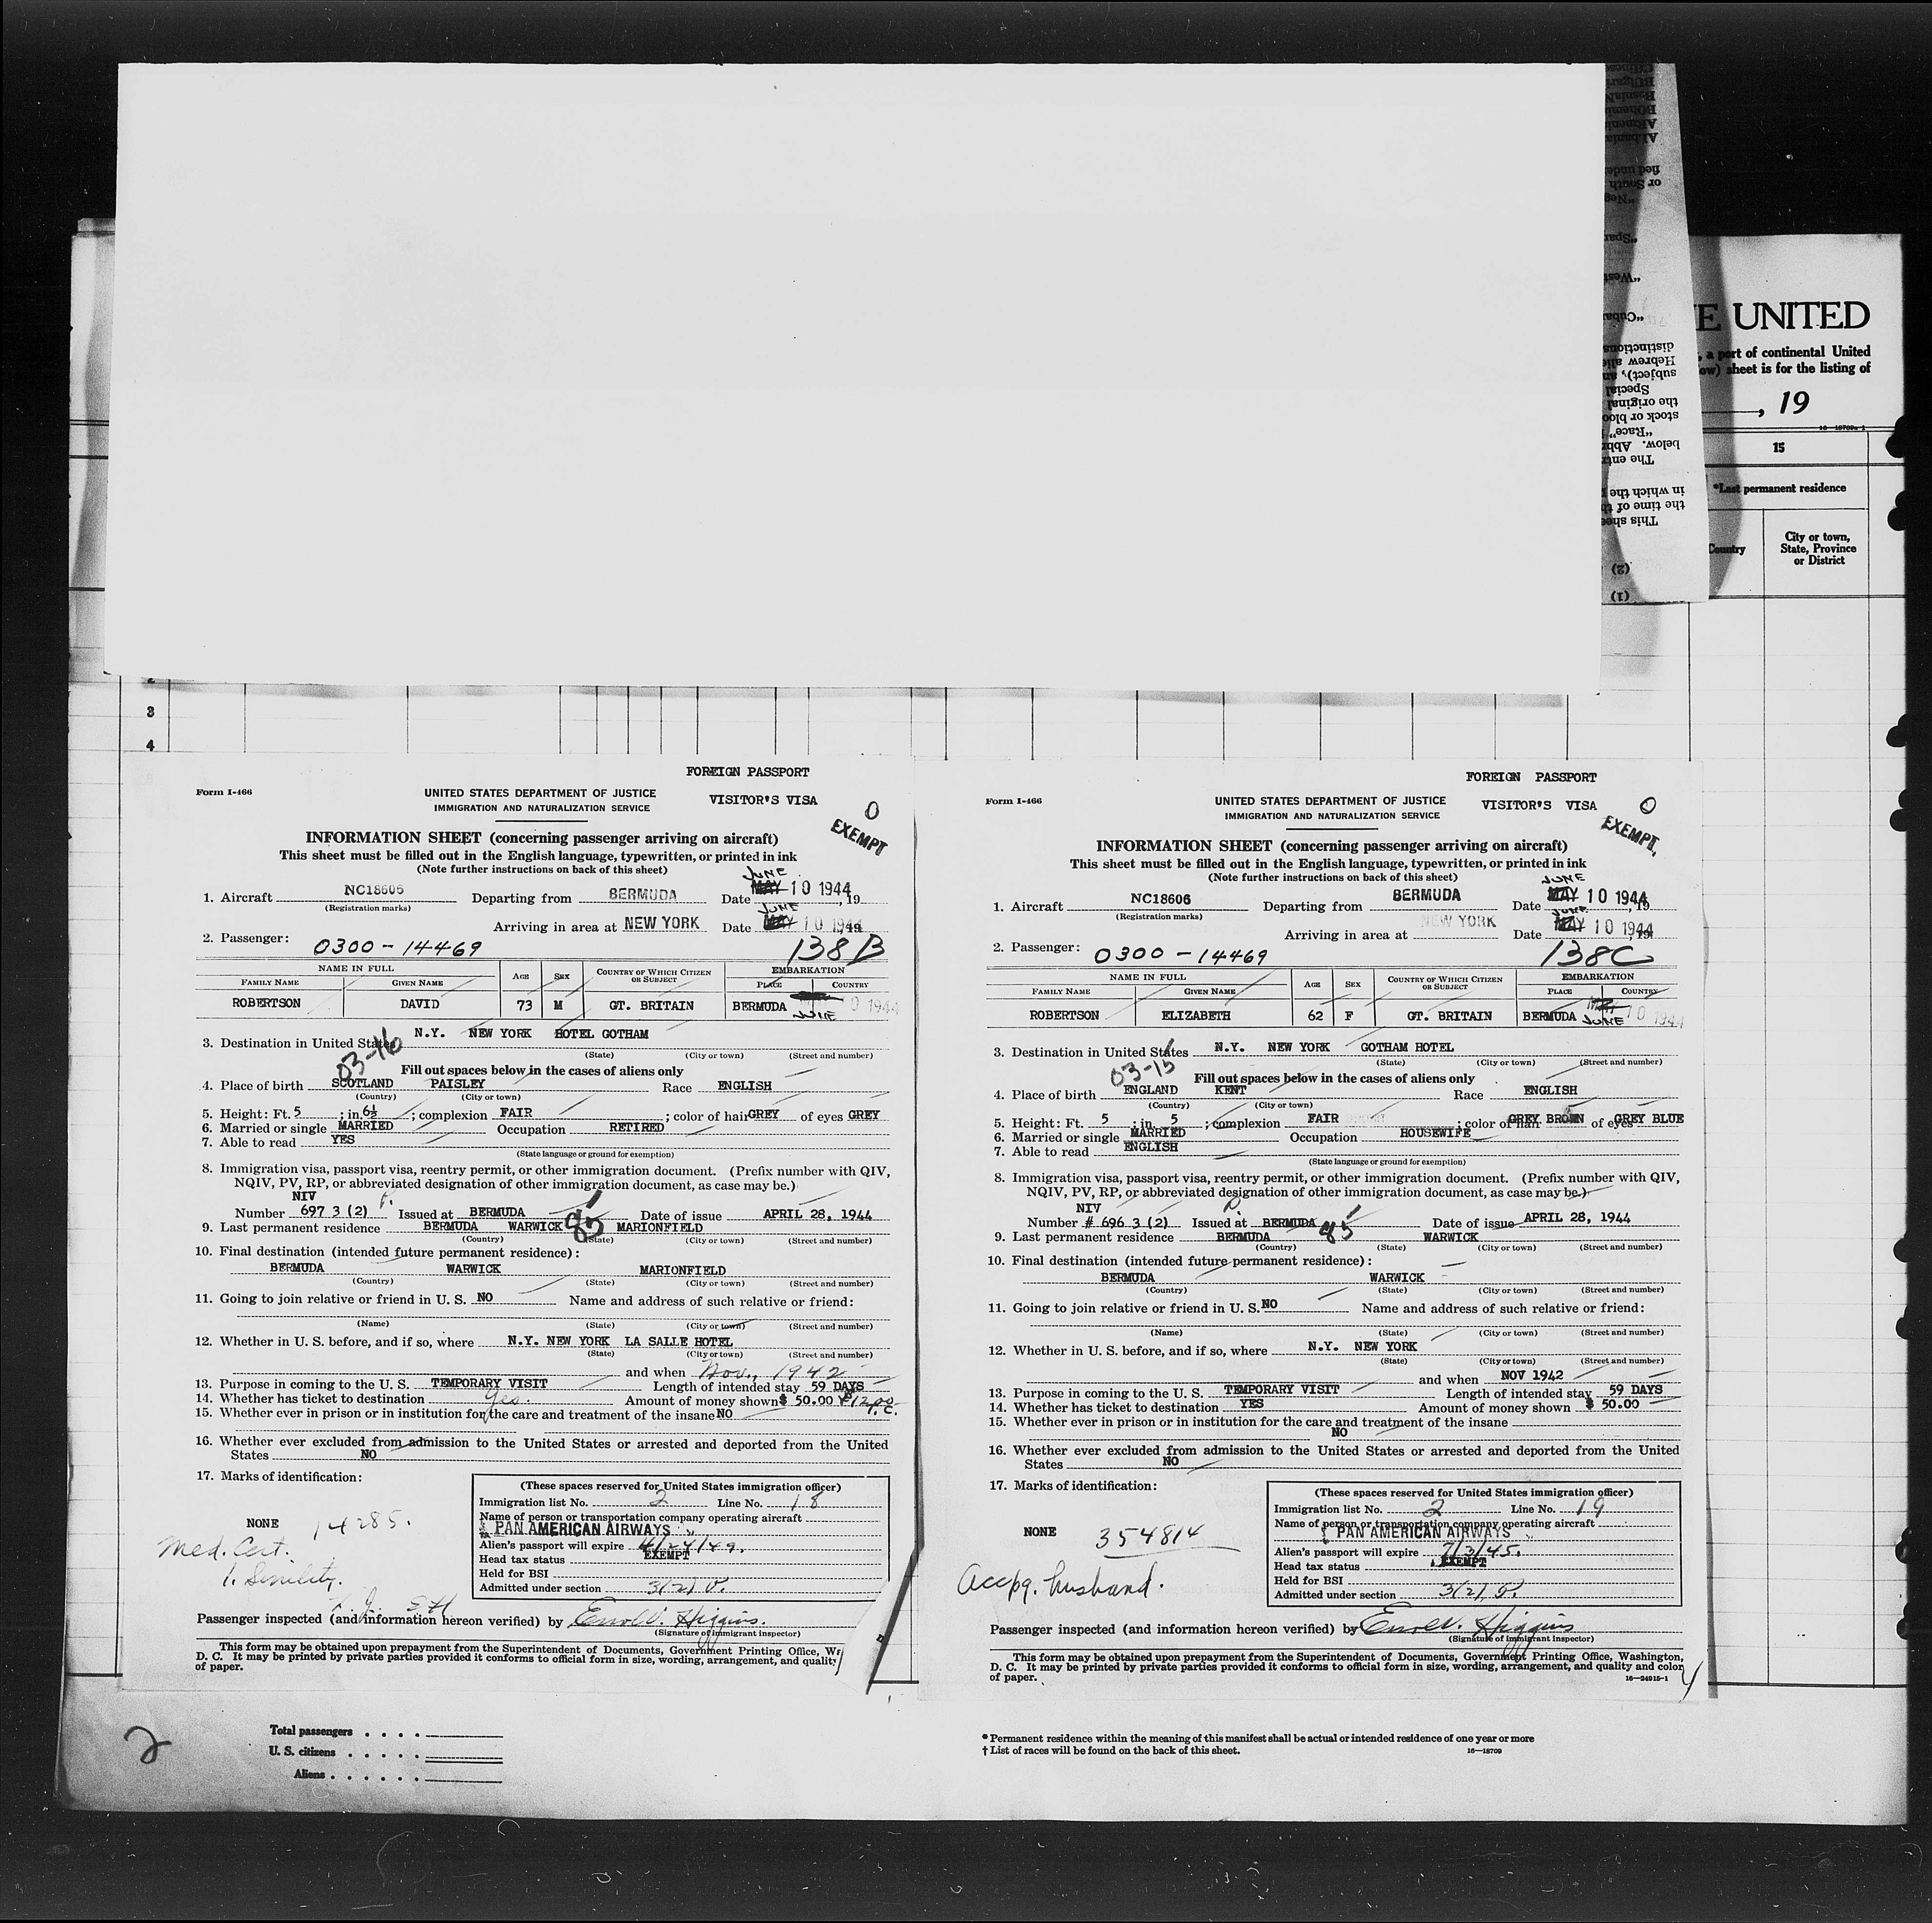 E UNITED
, a port of continental United
ow) sheet is for the listing of
, 19
16—18709a-1
15
*Last permanent residence
Country
City or town,
State, Province
or District
3
4
FOREIGN PASSPORT
Form I-466
UNITED STATES DEPARTMENT OF JUSTICE
VISITOR'S VISA
IMMIGRATION AND NATURALIZATION SERVICE
0
EXEMPT
INFORMATION SHEET (concerning passenger arriving on aircraft)
This sheet must be filled out in the English language, typewritten, or printed in ink
(Note further instructions on back of this sheet)
JUNE
1. Aircraft NC18606 Departing from BERMUDA Date MAY 10 1944, 19
(Registration marks)
JUNE
Arriving in area at NEW YORK Date MAY 10 1944
2. Passenger: 0300-14469 138B
NAME IN FULL AGE SEX COUNTRY OF WHICH CITIZEN OR SUBJECT EMBARKATION
FAMILY NAME GIVEN NAME PLACE COUNTRY
ROBERTSON DAVID 73 M GT. BRITAIN BERMUDA JUNE 10 1944
3. Destination in United States N.Y. NEW YORK HOTEL GOTHAM
(State) (City or town) (Street and number)
03-16
Fill out spaces below in the cases of aliens only
4. Place of birth SCOTLAND PAISLEY Race ENGLISH
(Country) (City or town)
5. Height: Ft. 5 ; in. 6½ ; complexion FAIR ; color of hair GREY of eyes GREY
6. Married or single MARRIED Occupation RETIRED
7. Able to read YES
(State language or ground for exemption)
8. Immigration visa, passport visa, reentry permit, or other immigration document. (Prefix number with QIV,
NQIV, PV, RP, or abbreviated designation of other immigration document, as case may be.)
NIV
Number 697 3 (2) Issued at BERMUDA Date of issue APRIL 28, 1944
9. Last permanent residence BERMUDA WARWICK 85 MARIONFIELD
(Country) (State) (City or town) (Street and number)
10. Final destination (intended future permanent residence):
BERMUDA WARWICK MARIONFIELD
(Country) (State) (City or town) (Street and number)
11. Going to join relative or friend in U. S. NO Name and address of such relative or friend:
(Name) (State) (City or town) (Street and number)
12. Whether in U. S. before, and if so, where N.Y. NEW YORK LA SALLE HOTEL
(State) (City or town) (Street and number)
and when Nov., 1942
13. Purpose in coming to the U. S. TEMPORARY VISIT Length of intended stay 59 DAYS
14. Whether has ticket to destination Yes. Amount of money shown $ 50.00
15. Whether ever in prison or in institution for the care and treatment of the insane NO
16. Whether ever excluded from admission to the United States or arrested and deported from the United
States NO
17. Marks of identification:
NONE 14285.
Med. Cert.
1. Senility.
(These spaces reserved for United States immigration officer)
Immigration list No. 2 Line No. 18
Name of person or transportation company operating aircraft
PAN AMERICAN AIRWAYS
Alien's passport will expire 4/24/49.
Head tax status EXEMPT
Held for BSI
Admitted under section 3(2) V.
Passenger inspected (and information hereon verified) by Errol V. Higgins.
(Signature of immigrant inspector)
This form may be obtained upon prepayment from the Superintendent of Documents, Government Printing Office, W
D. C. It may be printed by private parties provided it conforms to official form in size, wording, arrangement, and quality
of paper.
FOREIGN PASSPORT
Form I-466
UNITED STATES DEPARTMENT OF JUSTICE
VISITOR'S VISA
IMMIGRATION AND NATURALIZATION SERVICE
0
EXEMPT
INFORMATION SHEET (concerning passenger arriving on aircraft)
This sheet must be filled out in the English language, typewritten, or printed in ink
(Note further instructions on back of this sheet)
JUNE
1. Aircraft NC18606 Departing from BERMUDA Date MAY 10 1944, 19
(Registration marks)
JUNE
Arriving in area at NEW YORK Date MAY 10 1944
2. Passenger: 0300-14469 138C
NAME IN FULL AGE SEX COUNTRY OF WHICH CITIZEN OR SUBJECT EMBARKATION
FAMILY NAME GIVEN NAME PLACE COUNTRY
ROBERTSON ELIZABETH 62 F GT. BRITAIN BERMUDA MAY JUNE 10 1944
3. Destination in United States N.Y. NEW YORK GOTHAM HOTEL
(State) (City or town) (Street and number)
03-15
Fill out spaces below in the cases of aliens only
4. Place of birth ENGLAND KENT Race ENGLISH
(Country) (City or town)
5. Height: Ft. 5 ; in. 5 ; complexion FAIR ; color of hair GREY BROWN of eyes GREY BLUE
6. Married or single MARRIED Occupation HOUSEWIFE
7. Able to read ENGLISH
(State language or ground for exemption)
8. Immigration visa, passport visa, reentry permit, or other immigration document. (Prefix number with QIV,
NQIV, PV, RP, or abbreviated designation of other immigration document, as case may be.)
NIV
Number # 696 3 (2) Issued at BERMUDA Date of issue APRIL 28, 1944
9. Last permanent residence BERMUDA 85 WARWICK
(Country) (State) (City or town) (Street and number)
10. Final destination (intended future permanent residence):
BERMUDA WARWICK
(Country) (State) (City or town) (Street and number)
11. Going to join relative or friend in U. S. NO Name and address of such relative or friend:
(Name) (State) (City or town) (Street and number)
12. Whether in U. S. before, and if so, where N.Y. NEW YORK
(State) (City or town) (Street and number)
and when NOV 1942
13. Purpose in coming to the U. S. TEMPORARY VISIT Length of intended stay 59 DAYS
14. Whether has ticket to destination YES Amount of money shown $ 50.00
15. Whether ever in prison or in institution for the care and treatment of the insane
NO
16. Whether ever excluded from admission to the United States or arrested and deported from the United
States NO
17. Marks of identification:
NONE 354814
Accpg. husband.
(These spaces reserved for United States immigration officer)
Immigration list No. 2 Line No. 19
Name of person or transportation company operating aircraft
PAN AMERICAN AIRWAYS
Alien's passport will expire 7/3/45.
Head tax status EXEMPT
Held for BSI
Admitted under section 3(2) V.
Passenger inspected (and information hereon verified) by Errol V. Higgins
(Signature of immigrant inspector)
This form may be obtained upon prepayment from the Superintendent of Documents, Government Printing Office, Washington,
D. C. It may be printed by private parties provided it conforms to official form in size, wording, arrangement, and quality and color
of paper.
16—24915-1
2
Total passengers
U. S. citizens
Aliens
* Permanent residence within the meaning of this manifest shall be actual or intended residence of one year or more
† List of races will be found on the back of this sheet.
16—18709